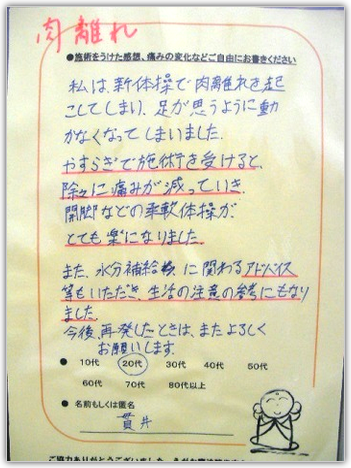 肉離れ
●施術をうけた感想、痛みの変化などご自由にお書きください
私は、新体操で肉離れを起
こしてしまい、足が思うように動
かなくなってしまいました。
やすらぎで施術を受けると、
除々に痛みが減っていき、
開脚などの柔軟体操が
とても楽になりました。
また、水分補給 に関わるアドバイス
等もいただき、生活の注意の参考にもなり
ました。
今後、再発したときは、またよろしく
お願いします。
● 10代 20代 30代 40代 50代
60代 70代 80代以上
● 名前もしくは匿名
貫井
ご協力ありがとうございました。